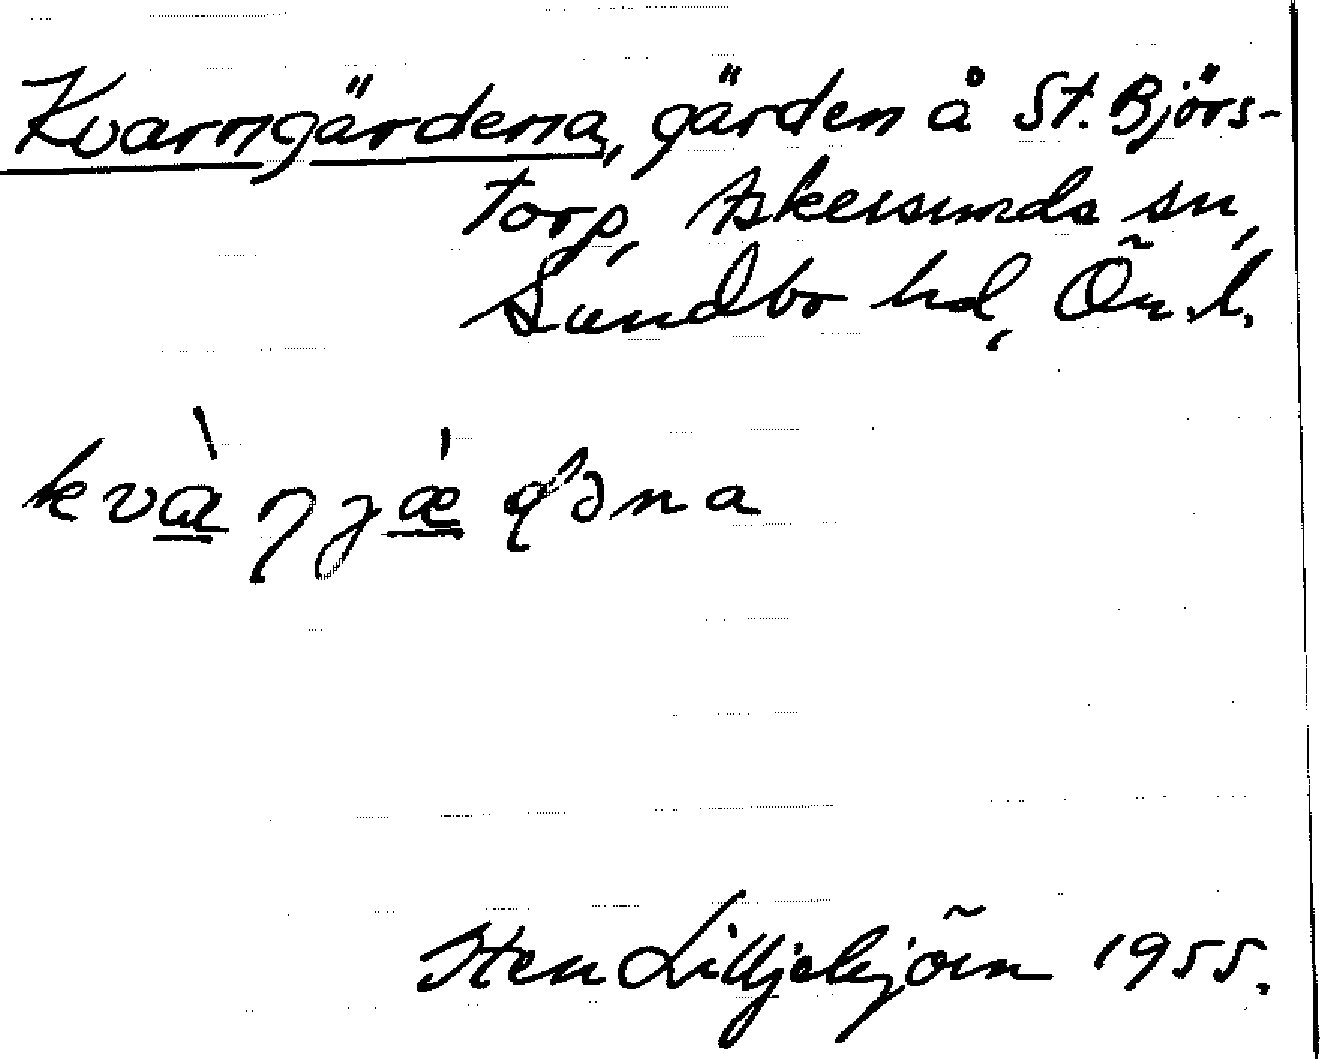 Kvarngärdena, gärden å St. Björs-
torp, Askersunds sn,
Sundbo hd, Ör. l.
Sten Lilljebjörn 1955.